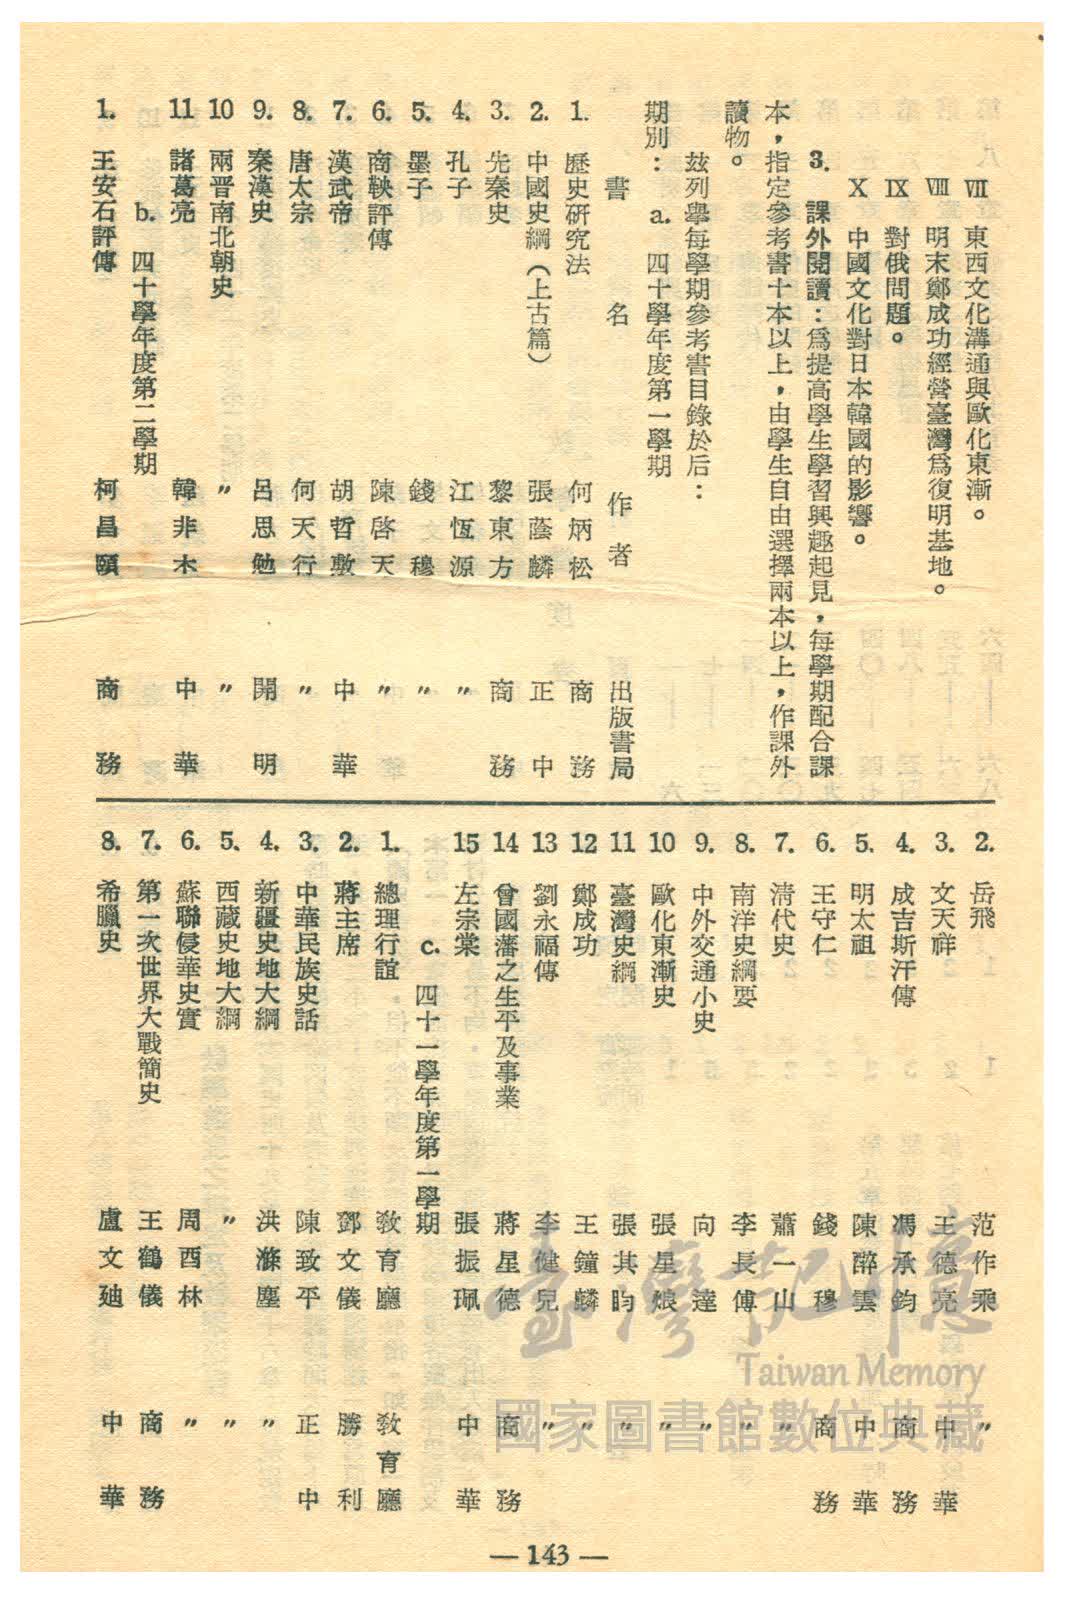 Ⅶ 東西文化溝通與歐化東漸。
Ⅷ 明末鄭成功經營臺灣爲復明基地。
Ⅸ 對俄問題。
Ⅹ 中國文化對日本韓國的影響。
3. 課外閱讀：爲提高學生學習興趣起見，每學期配合課
本，指定參考書十本以上，由學生自由選擇兩本以上，作課外
讀物。
茲列舉每學期參考書目錄於后：
期別：a. 四十學年度第一學期
書名 作者 出版書局
1. 歷史研究法 何炳松 商務
2. 中國史綱（上古篇） 張蔭麟 正中
3. 先秦史 黎東方 商務
4. 孔子 江恆源 〃
5. 墨子 錢穆 〃
6. 商鞅評傳 陳啓天 〃
7. 漢武帝 胡哲敷 中華
8. 唐太宗 何天行 〃
9. 秦漢史 呂思勉 開明
10 兩晋南北朝史 〃 〃
11 諸葛亮 韓非木 中華
b. 四十學年度第二學期
1. 王安石評傳 柯昌頤 商務
2. 岳飛 范作乘 〃
3. 文天祥 王德亮 中華
4. 成吉斯汗傳 馮承鈞 商務
5. 明太祖 陳醉雲 中華
6. 王守仁 錢穆 商務
7. 清代史 蕭一山 〃
8. 南洋史綱要 李長傅 〃
9. 中外交通小史 向達 〃
10 歐化東漸史 張星烺 〃
11 臺灣史綱 張其昀 〃
12 鄭成功 王鐘麟 〃
13 劉永福傳 李健兒 〃
14 曾國藩之生平及事業 蔣星德 商務
15 左宗棠 張振珮 中華
c. 四十一學年度第一學期
1. 總理行誼 敎育廳 敎育廳
2. 蔣主席 鄧文儀 勝利
3. 中華民族史話 陳致平 正中
4. 新疆史地大綱 洪滌塵 〃
5. 西藏史地大綱 〃 〃
6. 蘇聯侵華史實 周酉林 〃
7. 第一次世界大戰簡史 王鶴儀 商務
8. 希臘史 盧文迪 中華
臺灣記憶
Taiwan Memory
國家圖書館數位典藏
— 143 —